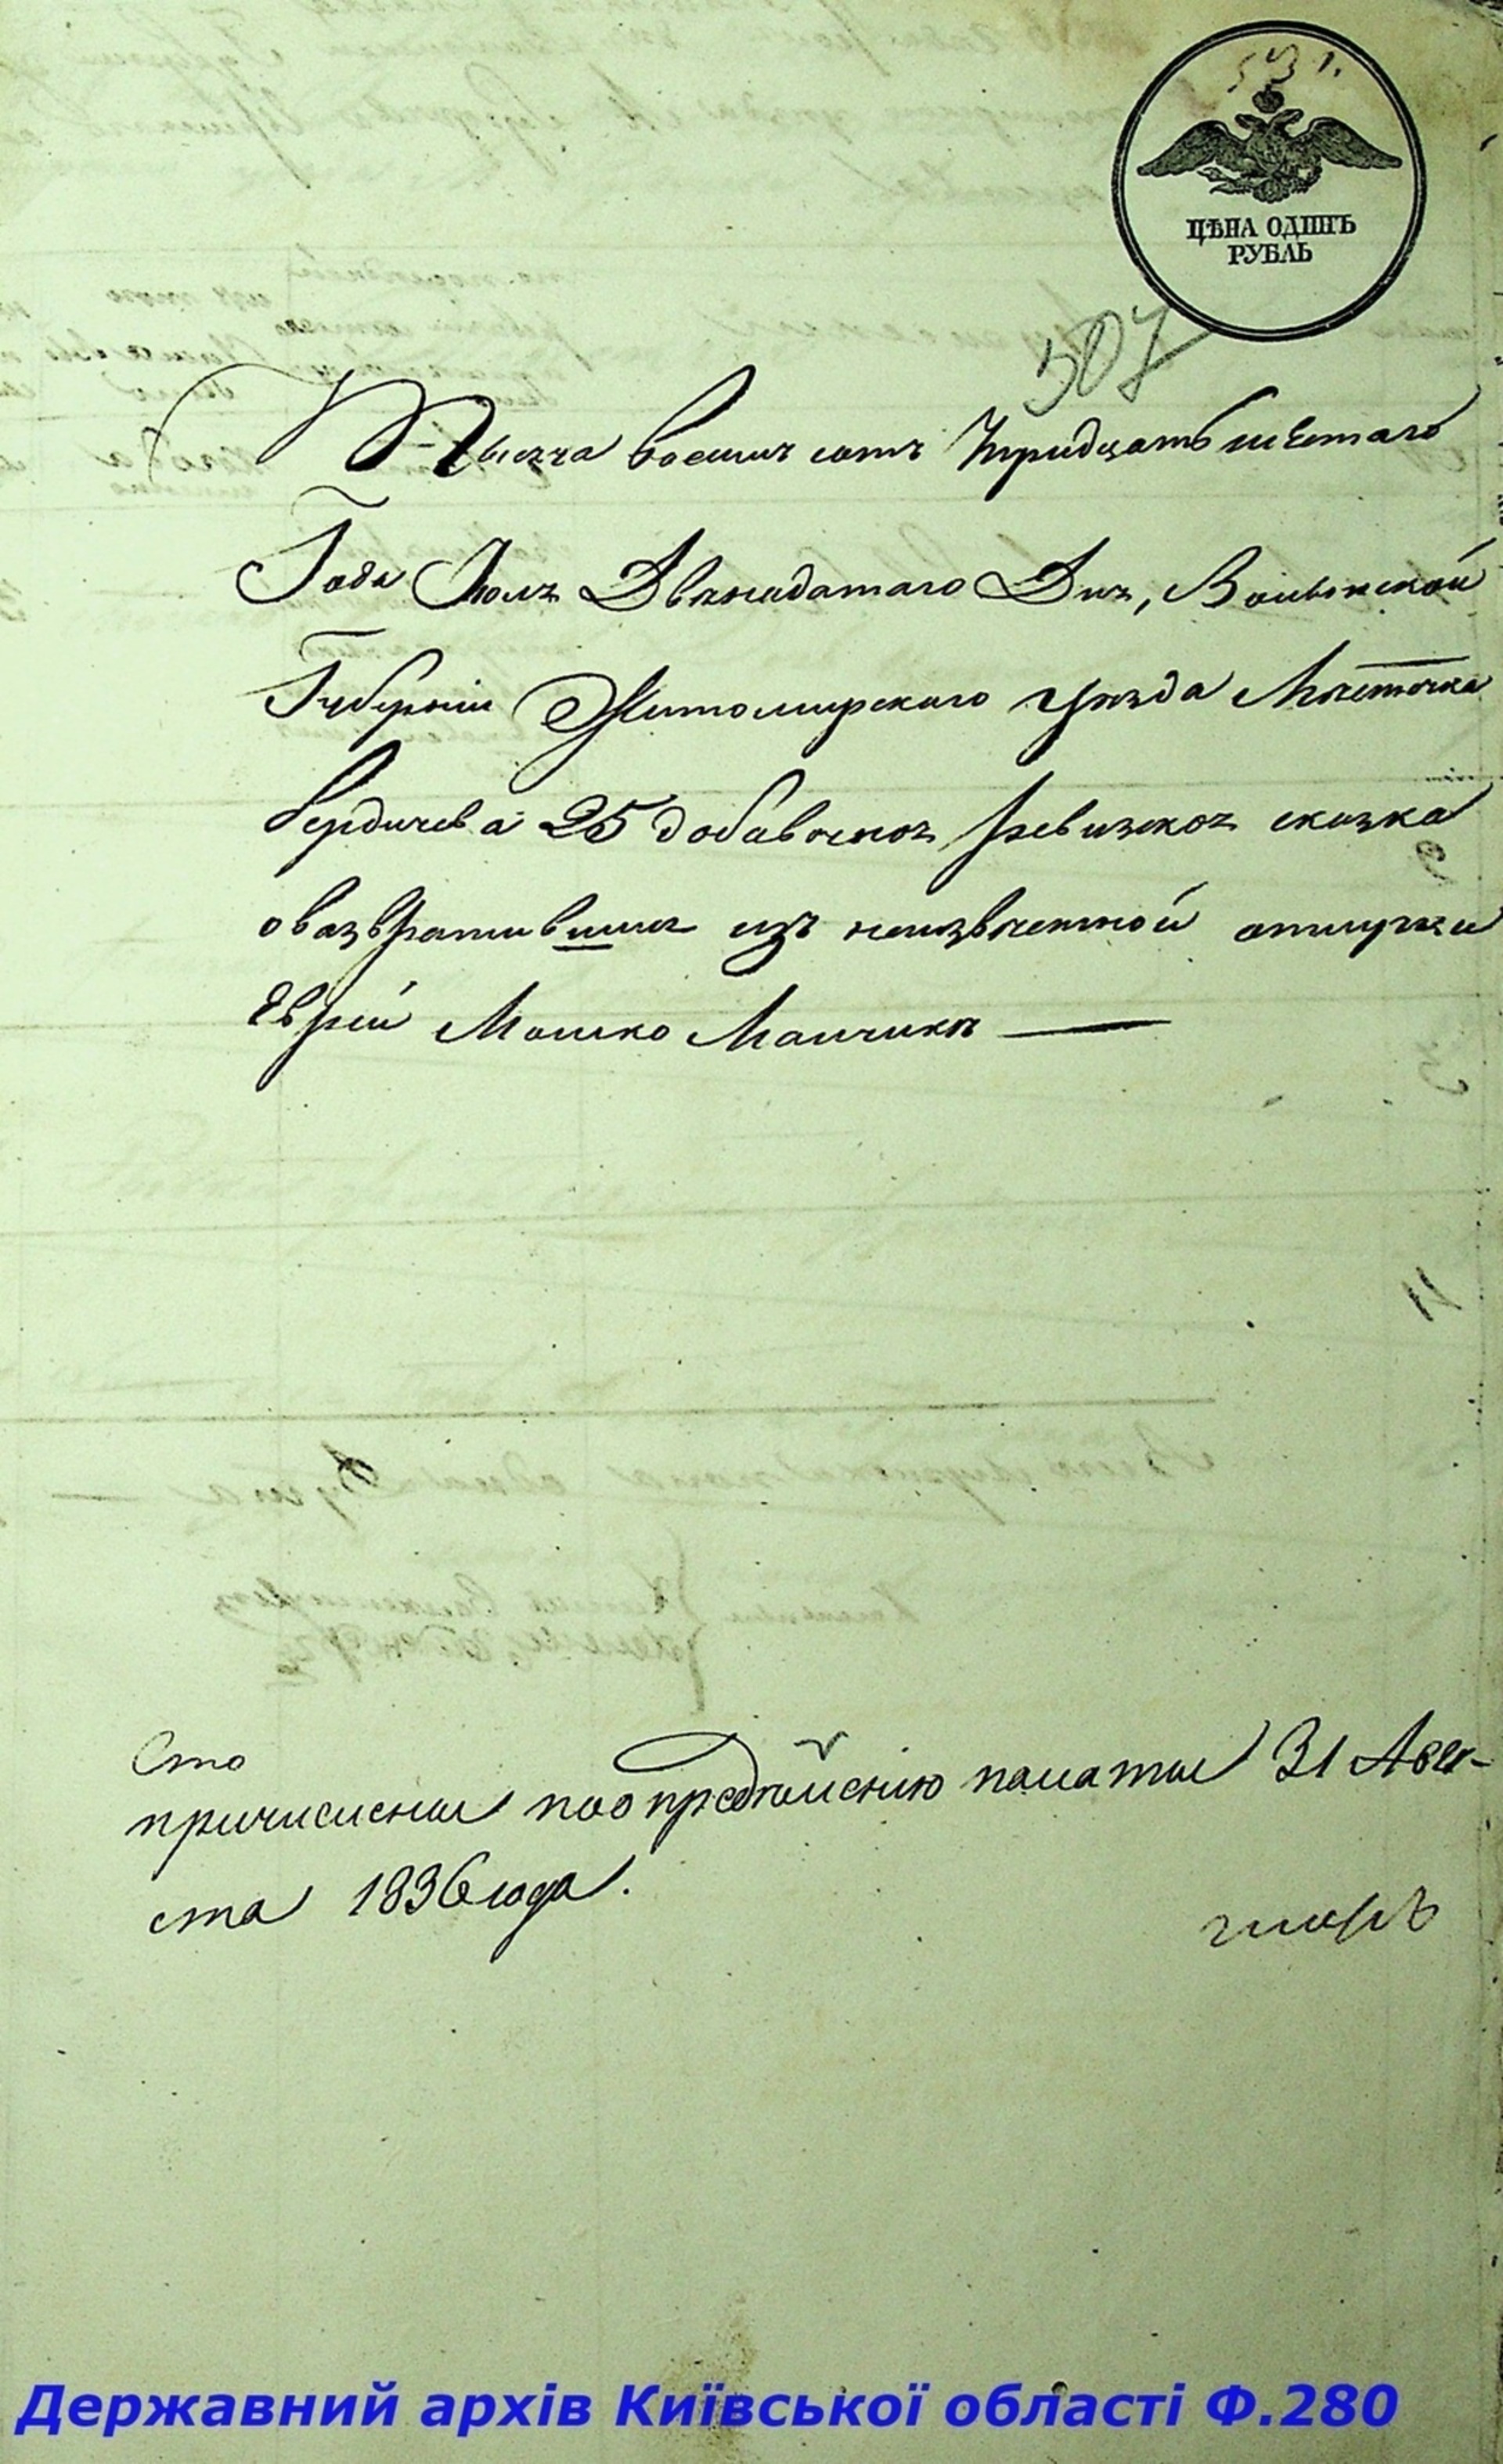 ЦѢНА ОДИНЪ
РУБЛЬ
507
Тысяча восемь сотъ тридцать шестаго
Года Июля Двенадатаго Дня, Волынской
Губерніи Житомирского уѣзда Мѣстечка
Бердичева 25 добавочноя ревизскоя сказка
о возвратившимъ изъ неизвѣстной отлучки
Еврѣй Мошко Манчикъ
Сто
причислены по предписанію палаты 31 Авгу-
ста 1836 года.